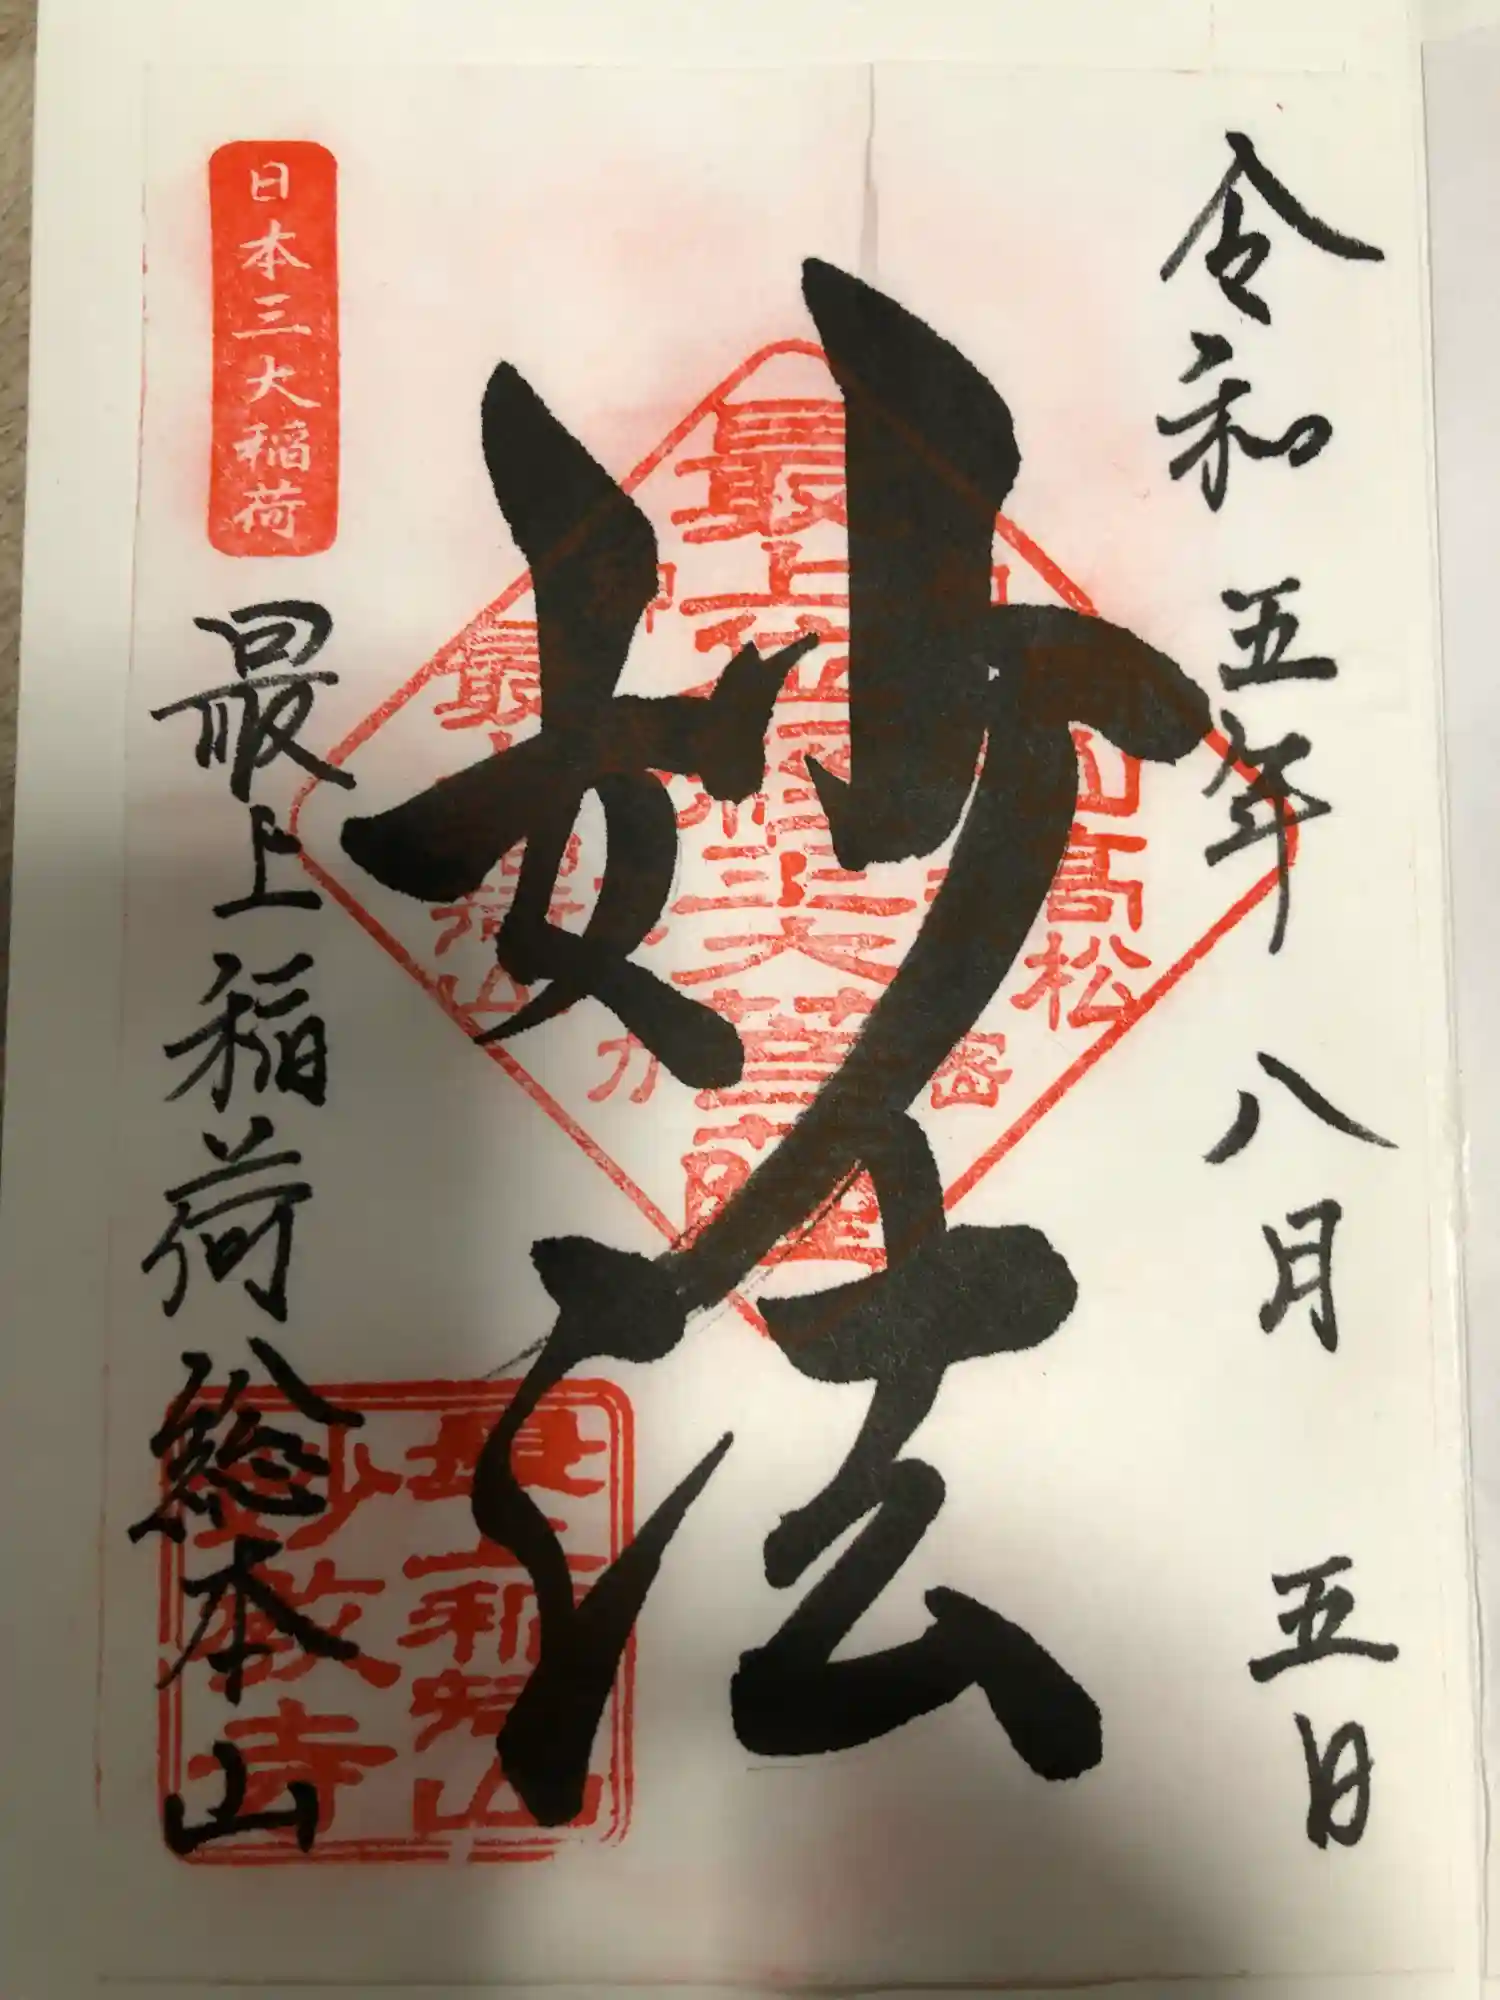 令和五年八月五日
妙法
日本三大稲荷
最上稲荷総本山
最上位経王大菩薩
高松
最上稲荷山
妙教寺